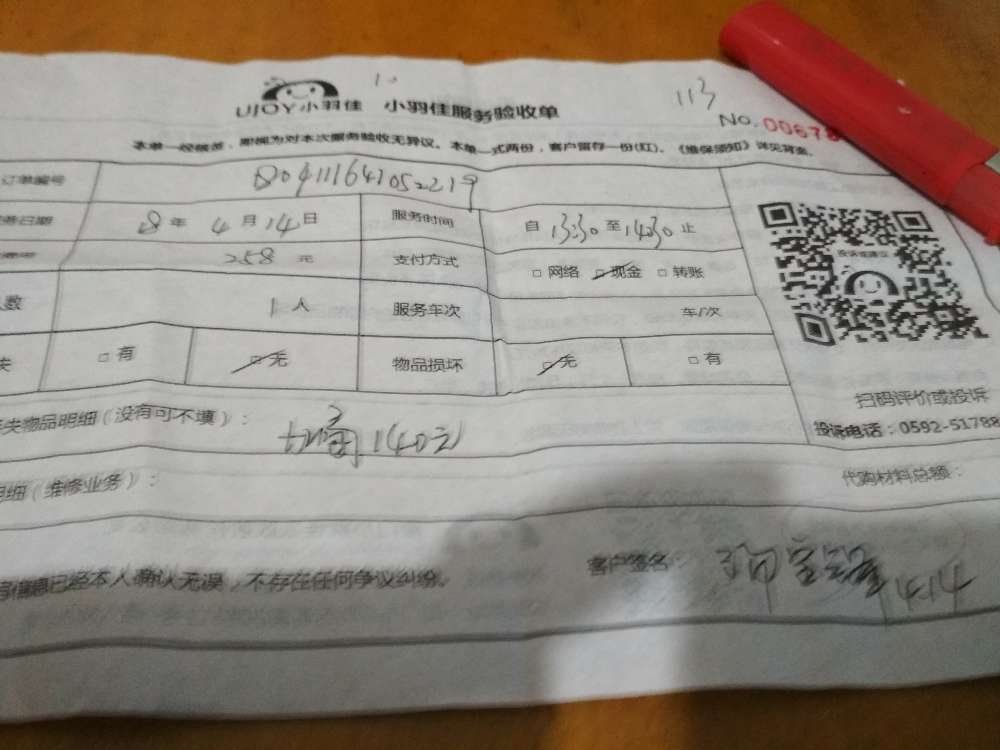 UJOY小羽佳 小羽佳服务验收单
113
No. 0067
本单一经核签，即视为对本次服务验收无异议。本单一式两份，客户留存一份(红)。《维保须知》详见背面。
订单编号
8年4月14日 服务时间 自13:30至14:30止
258元 支付方式 □网络 □现金 □转账
人数 1人 服务车次 车/次
失 □有 □无 物品损坏 □无 □有
投诉或建议
扫码评价或投诉
投诉电话：0592-51788
失物品明细（没有可不填）： 140元
明细（维修业务）： 代购材料总额：
信息已经本人确认无误，不存在任何争议纠纷。 客户签名： 4.14